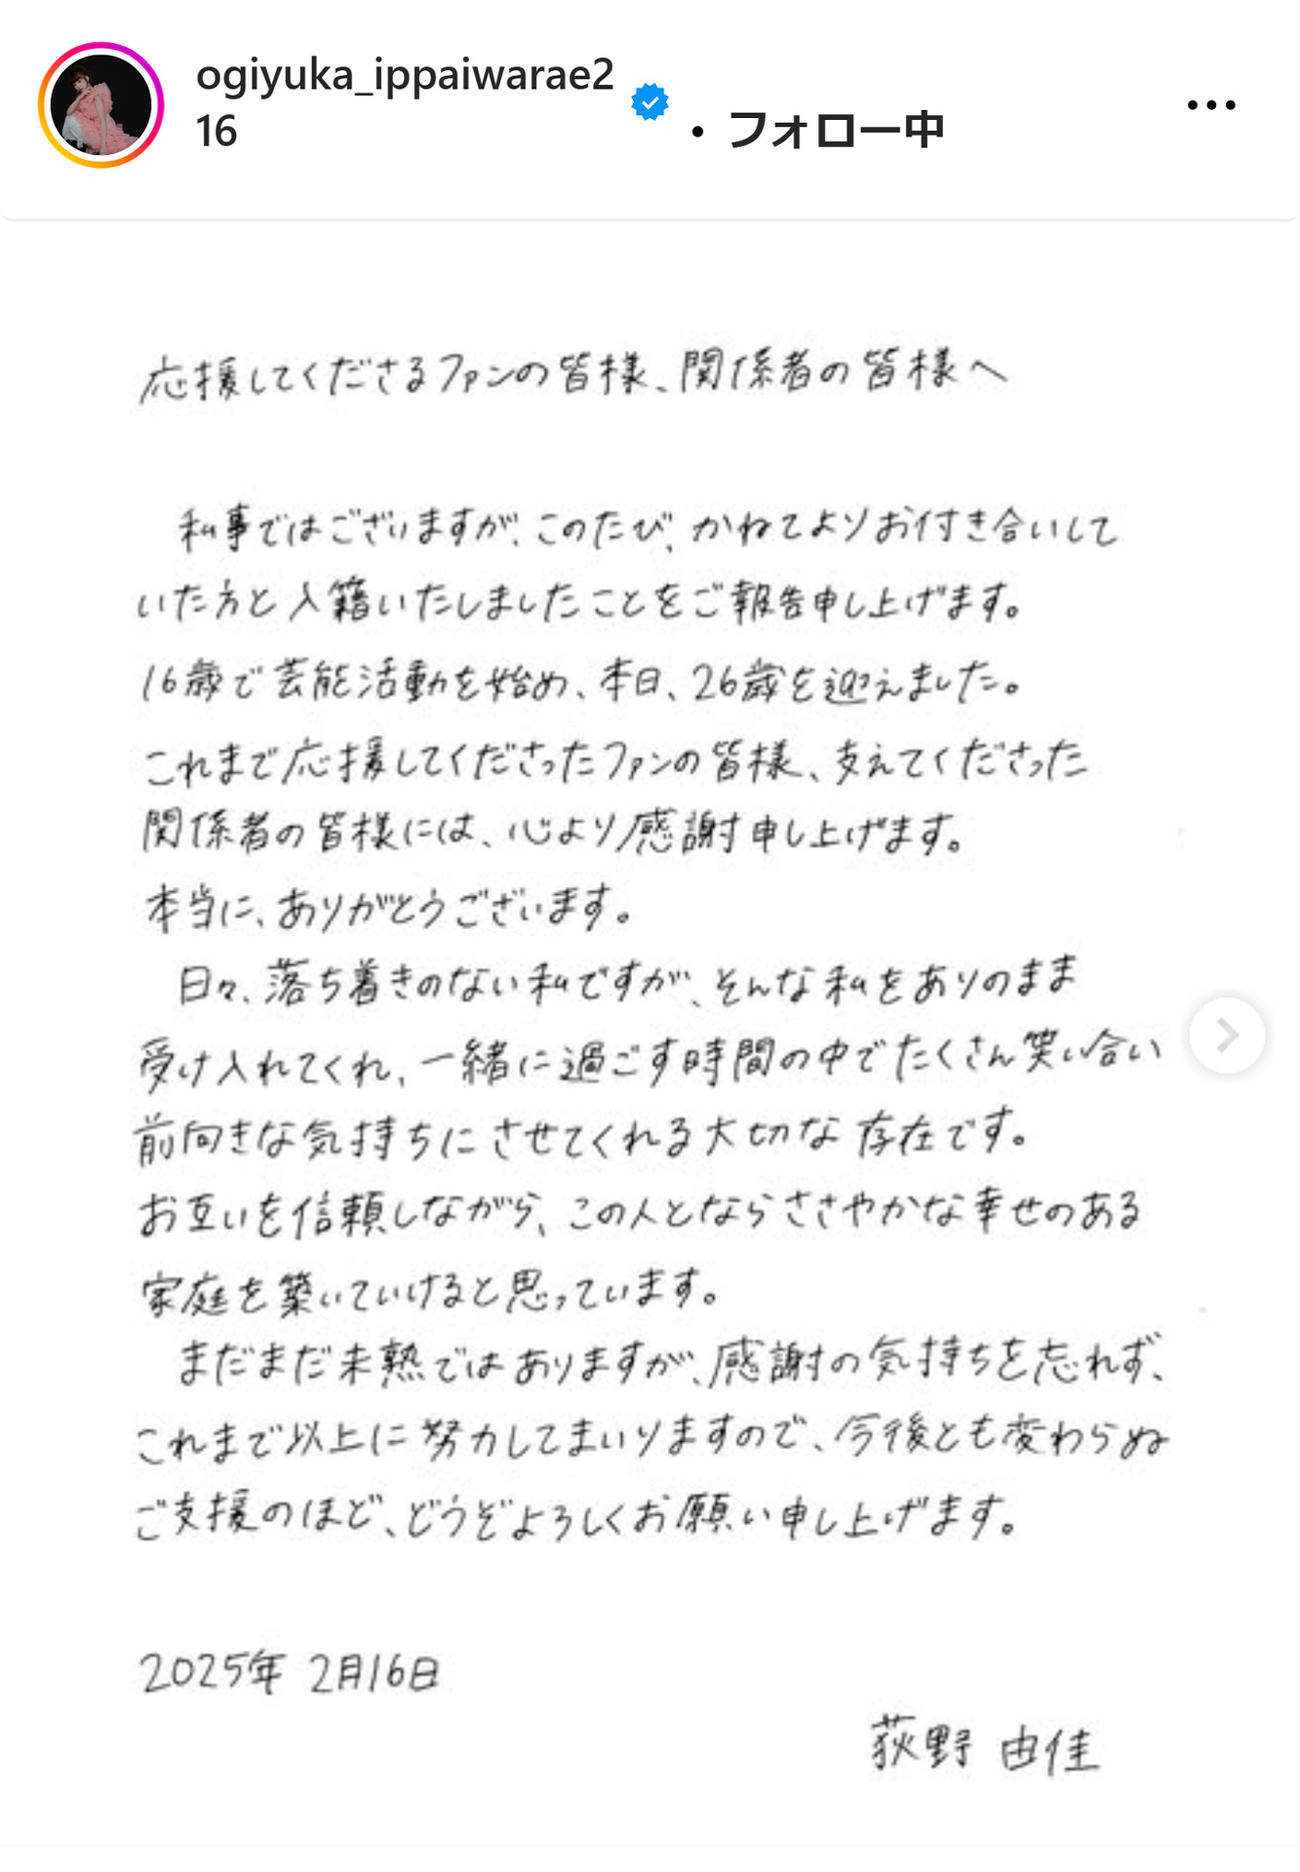 ogiyuka_ippaiwarae2
16
• フォロー中
応援してくださるファンの皆様、関係者の皆様へ
私事ではございますが、このたび、かねてよりお付き合いして
いた方と入籍いたしましたことをご報告申し上げます。
16歳で芸能活動を始め、本日、26歳を迎えました。
これまで応援してくださったファンの皆様、支えてくださった
関係者の皆様には、心より感謝申し上げます。
本当に、ありがとうございます。
日々、落ち着きのない私ですが、そんな私をありのまま
受け入れてくれ、一緒に過ごす時間の中でたくさん笑い合い
前向きな気持ちにさせてくれる大切な存在です。
お互いを信頼しながら、この人とならささやかな幸せのある
家庭を築いていけると思っています。
まだまだ未熟ではありますが、感謝の気持ちを忘れず、
これまで以上に努力してまいりますので、今後とも変わらぬ
ご支援のほど、どうぞよろしくお願い申し上げます。
2025年 2月16日
荻野 由佳